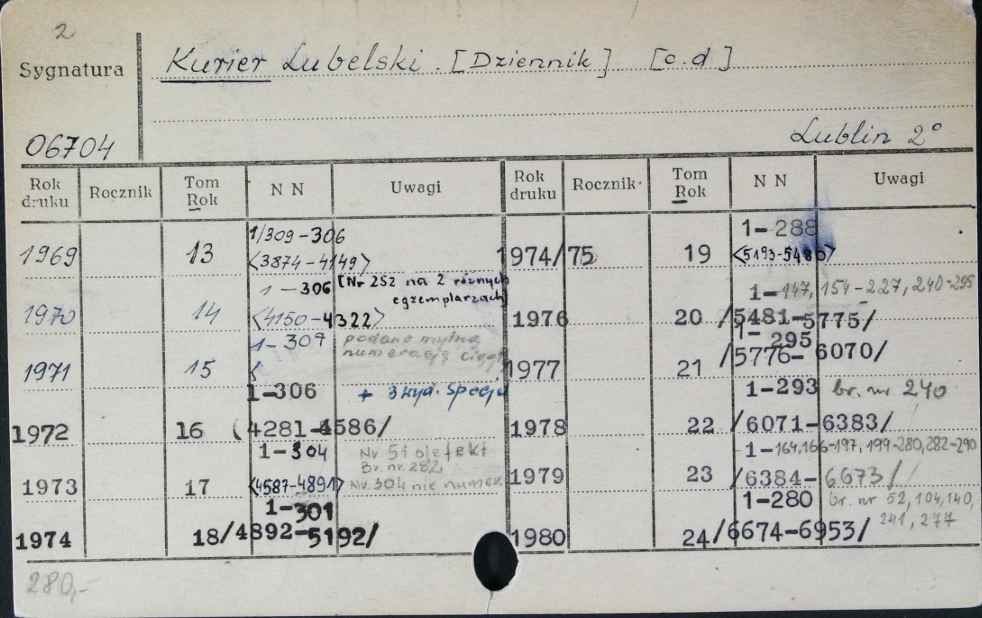 2
Sygnatura
Kurier Lubelski. [Dziennik] [c.d]
06704
Lublin 2°
Rok druku Rocznik Tom Rok NN Uwagi
1969 13 1/309-306 <3874-4149>
1970 14 1-306 <4150-4322> [Nr 252 na 2 różnych egzemplarzach]
1971 15 1-309 < podano mylną numerację ciągł
1972 16 1-306 (4281-4586/ + 3 wyd. specja
1973 17 1-304 <4587-4891> Nr 51 defekt Br. nr 282, Nr 304 nie numer.
1974 18 1-301 /4892-5192/
Rok druku Rocznik Tom Rok NN Uwagi
1974/75 19 1-288 <5193-5480>
1976 20 1-147, 154-227, 240-295 /5481-5775/
1977 21 1-295 /5776-6070/
1978 22 1-293 /6071-6383/ br. nr 240
1979 23 1-164,166-197, 199-280,282-290 /6384-6673/
1980 24 1-280 /6674-6953/ br. nr 52, 104, 140, 241, 277
280,-